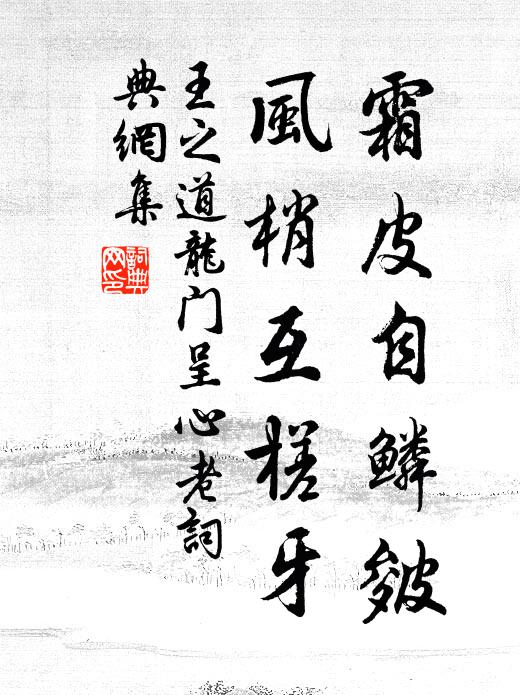 霜皮自鱗皴
風梢互槎牙
王之道龍门呈心老詞
典網集
詞典
网印